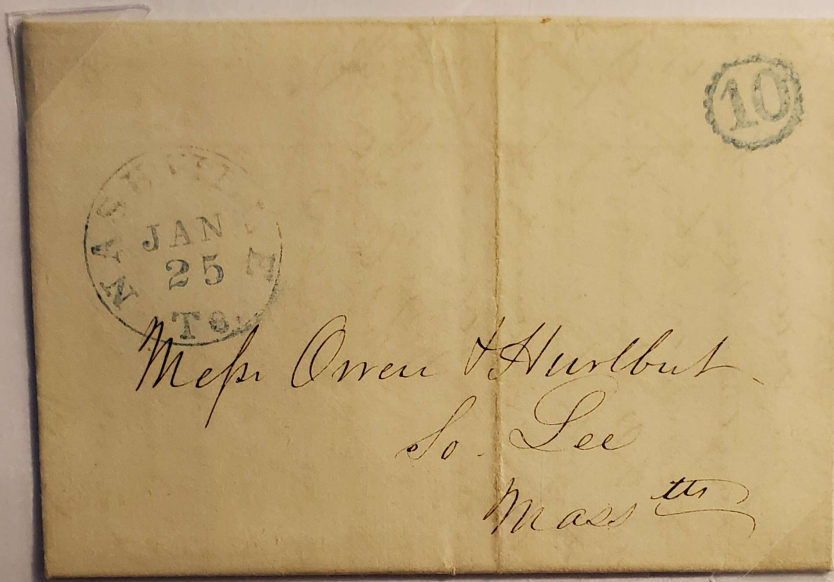 10
NASHVILLE
JAN
25
Messrs Owen & Hurlbut
So. Lee
Masstts